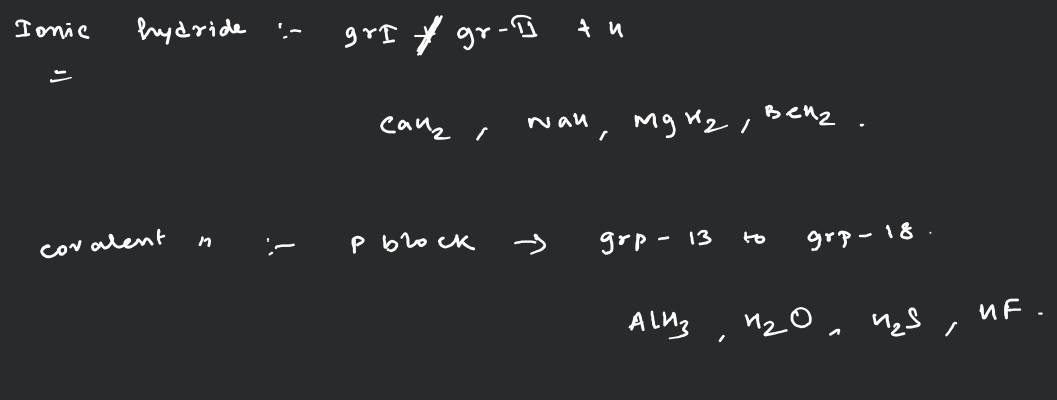 Ionic hydride :- grI / gr-II + H
CaH2 , NaH, MgH2, BeH2 .
covalent " :- P block → grp - 13 to grp - 18 .
AlH3 , H2O , H2S , HF .